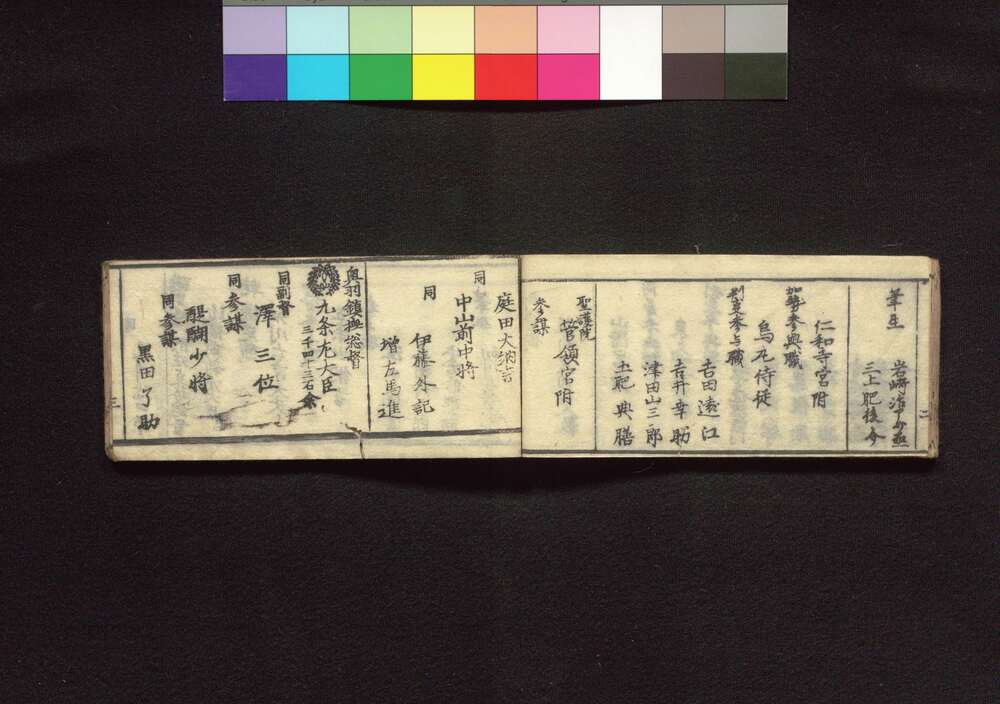 筆生
岩崎
三上肥後介
仁和寺宮附
加勢参與職
烏丸侍従
参与職
吉田遠江
吉井幸助
津田山三郎
土肥典膳
聖護院
菅領宮附
参謀
庭田大納言
同
中山前中将
同
伊藤外記
増左馬進
奥羽鎮撫総督
九条左大臣
三千四十三石余
同副督
澤三位
同参謀
醍醐少将
同参謀
黒田了助
二
三